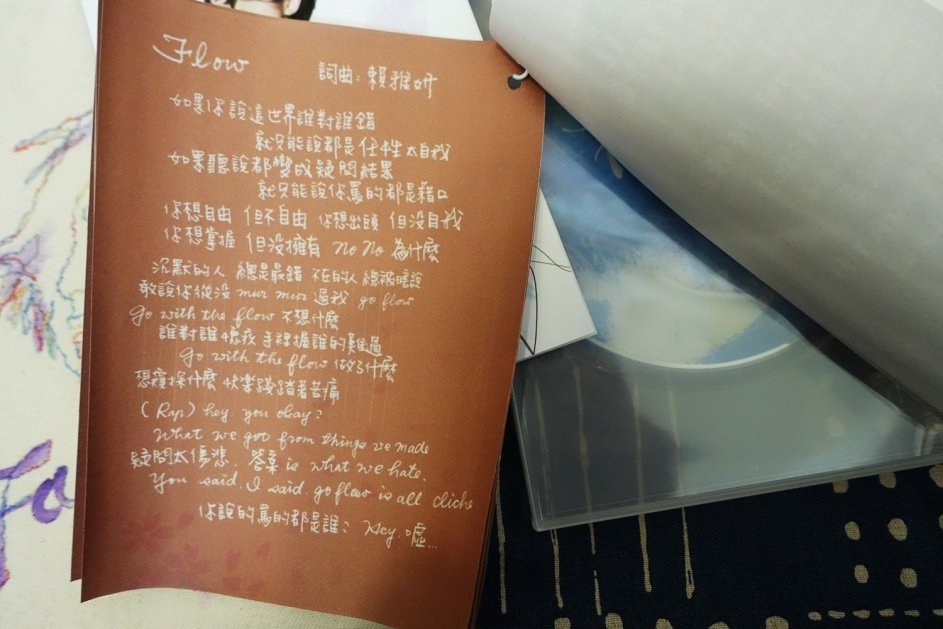 Flow
詞曲：賴雅妍
如果你說這世界誰對誰錯
就只能說都是任性太自我
如果聽說都變成疑問結果
就只能說你罵的都是藉口
你想自由 但不自由 你想出頭 但没自我
你想掌握 但没擁有 No No 為什麼
沉默的人 總是最錯 不在的人 總被瞎說
敢說你從没 mur mur 過我 go flow
Go with the flow 不想什麼
誰對誰錯 我手裡握誰的難過
Go with the flow 做了什麼
想窺探什麼 快樂踐踏著苦痛
(Rap) hey. you okay?
What we got from things we made
疑問太傷悲. 答案 is what we hate.
You said. I said. go flow is all cliche
你說的罵的都是誰? Hey. 噓...